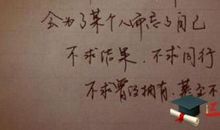 会为了某个人而忘了自己
不求结果,不求同行
不求曾经拥有,甚至不